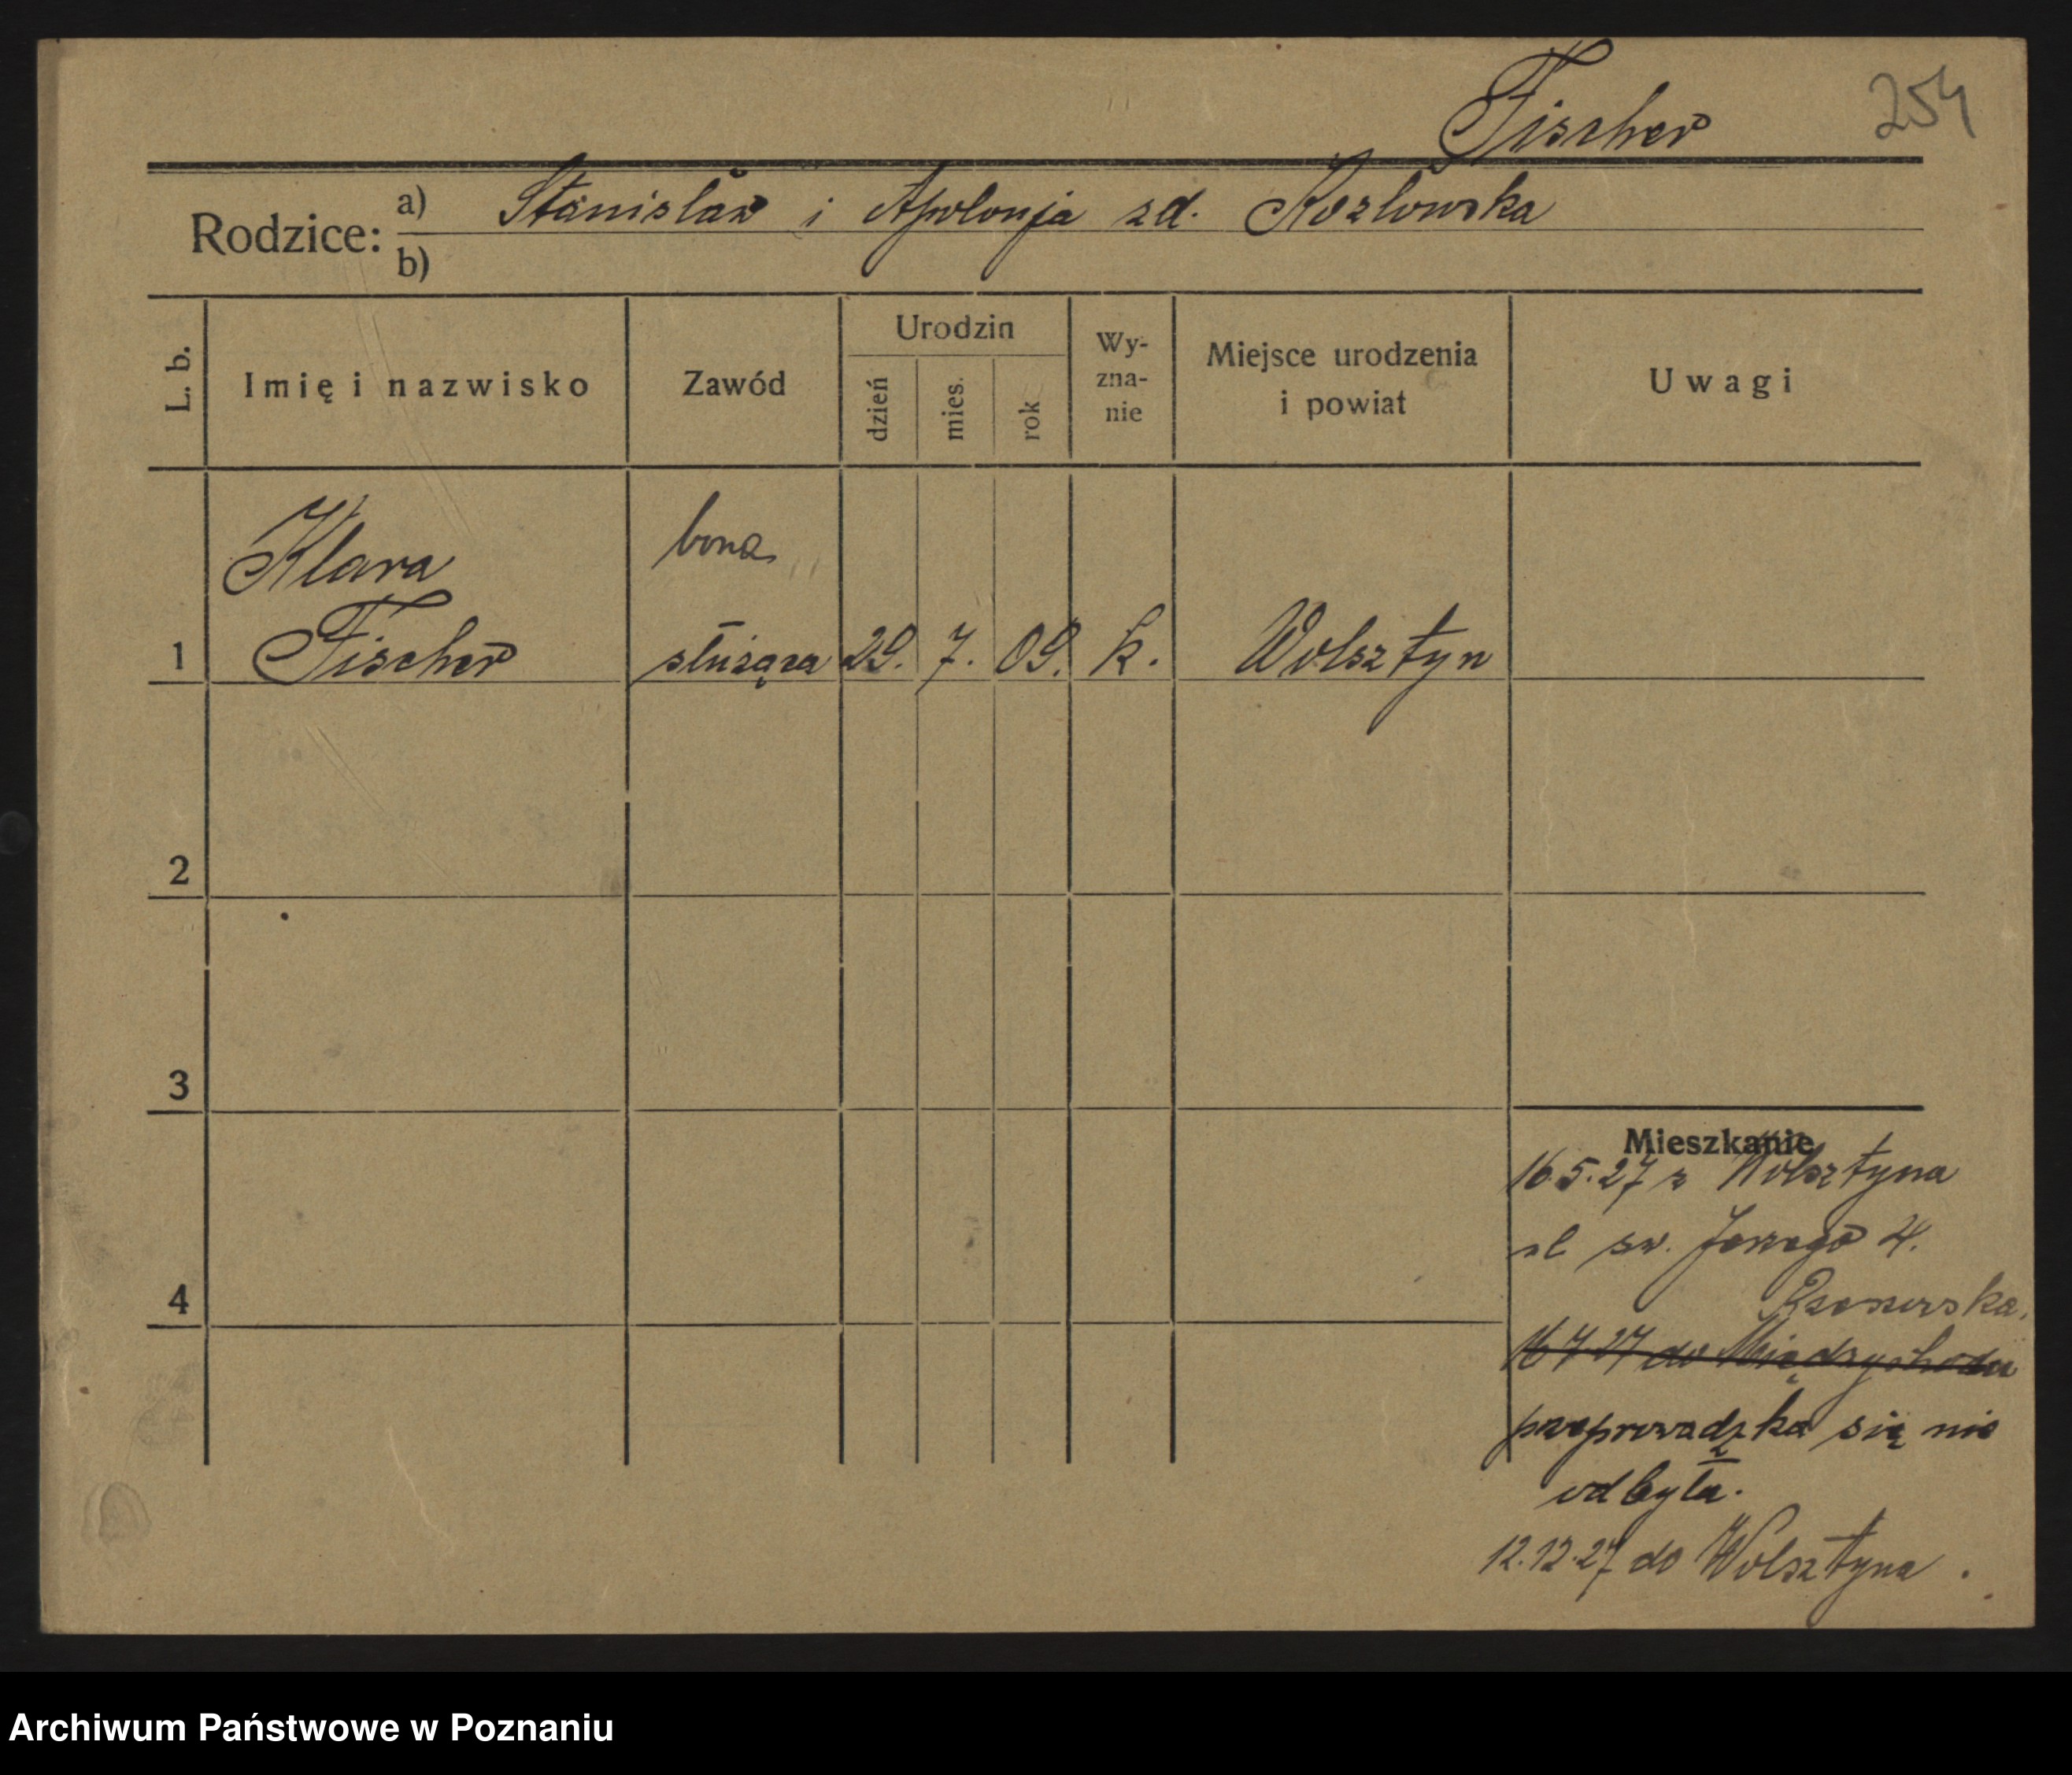 Fischer
254
Rodzice: a) Stanisław i Apolonja zd. Kozłowska
b)
L. b.
Imię i nazwisko
Zawód
Urodzin
dzień
mies.
rok
Wy-
zna-
nie
Miejsce urodzenia
i powiat
Uwagi
Klara
bona
1 Fischer służąca 29. 7. 09. k. Wolsztyn
2
3
4
Mieszkanie
16.5.27 z Wolsztyna
ul św. Jerzego 4.
16 7 27 do Międzychodu
przeprowadzka się nie
odbyła.
12.12.27 do Wolsztyna.
Archiwum Państwowe w Poznaniu